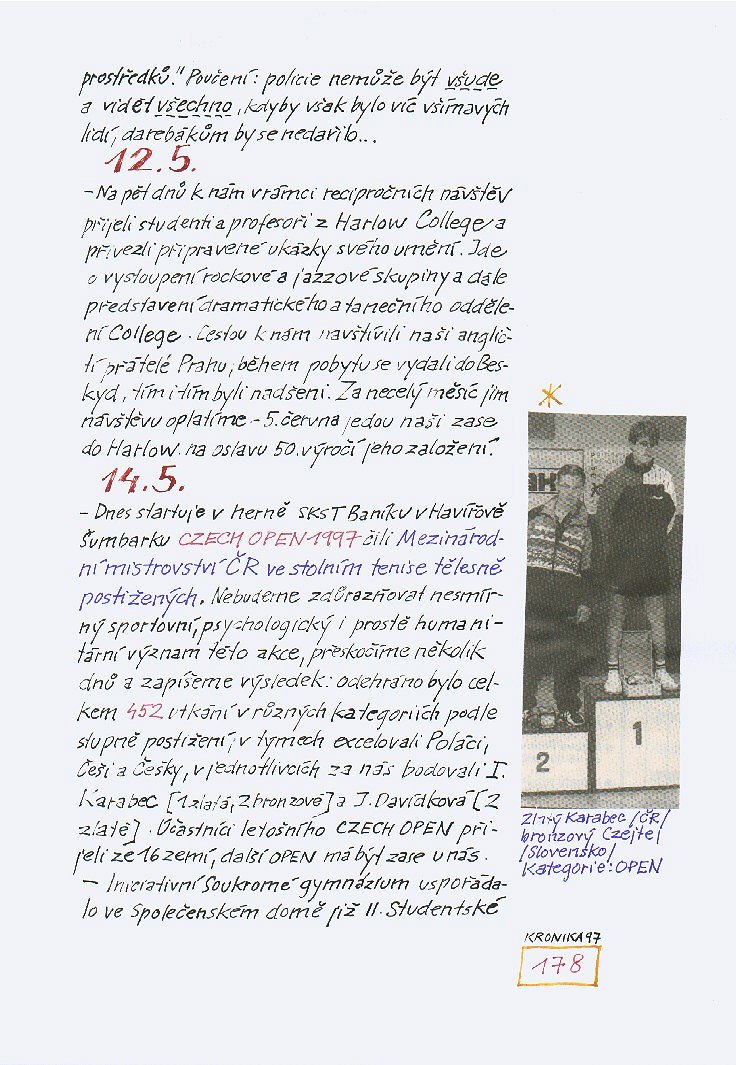 prostředků." Poučení: policie nemůže být všude
a vidět všechno, kdyby však bylo víc všímavých
lidí, darebákům by se nedařilo...
12.5.
– Na pět dnů k nám v rámci recipročních návštěv
přijeli studenti a profesoři z Harlow College a
přivezli připravené ukázky svého umění. Jde
o vystoupení rockové a jazzové skupiny a dále
představení dramatického a tanečního odděle-
ní College. Cestou k nám navštívili naši anglič-
tí přátelé Prahu, během pobytu se vydali do Bes-
kyd, tím i tím byli nadšeni. Za necelý měsíc jim
návštěvu oplatíme – 5. června jedou naši zase
do Harlow na oslavu 50. výročí jeho založení.
14.5.
– Dnes startuje v herně SKST Baníku v Havířově
Šumbarku CZECH OPEN 1997 čili Mezinárod-
ní mistrovství ČR ve stolním tenise tělesně
postižených. Nebudeme zdůrazňovat nesmír-
ný sportovní, psychologický i prostě humani-
tární význam této akce, přeskočíme několik
dnů a zapíšeme výsledek: odehráno bylo cel-
kem 452 utkání v různých kategoriích podle
stupně postižení; v týmech excelovali Poláci,
Češi a Češky, v jednotlivcích za nás bodovali I.
Karabec [1 zlatá, 2 bronzové] a J. Davídková [2
zlaté]. Účastníci letošního CZECH OPEN při-
jeli ze 16 zemí, další OPEN má být zase u nás.
– Iniciativní Soukromé gymnázium uspořáda-
lo ve Společenském domě již II. Studentské
2
1
Zlatý Karabec /ČR/
bronzový Czejtei
/Slovensko/
Kategorie: OPEN
KRONIKA 97
178